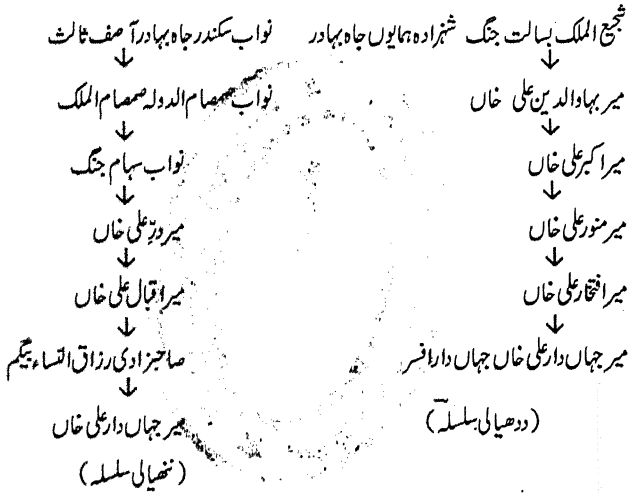 شجیع الملک بسالت جنگ شہزادہ ہمایوں جاہ بہادر
↓
میر بہاوالدین علی خاں
↓
میر اکبر علی خاں
↓
میر منور علی خاں
↓
میر افتخار علی خاں
↓
میر جہاں دار علی خاں جہاں دار افسر
(ددھیالی سلسلہ)
نواب سکندر جاہ بہادر آصف ثالث
↓
نواب صمصام الدولہ صمصام الملک
↓
نواب سہام جنگ
↓
میر درّ علی خاں
↓
میر اقبال علی خاں
↓
صاحبزادی رزاق النساء بیگم
↓
میر جہاں دار علی خاں
(ننھیالی سلسلہ)